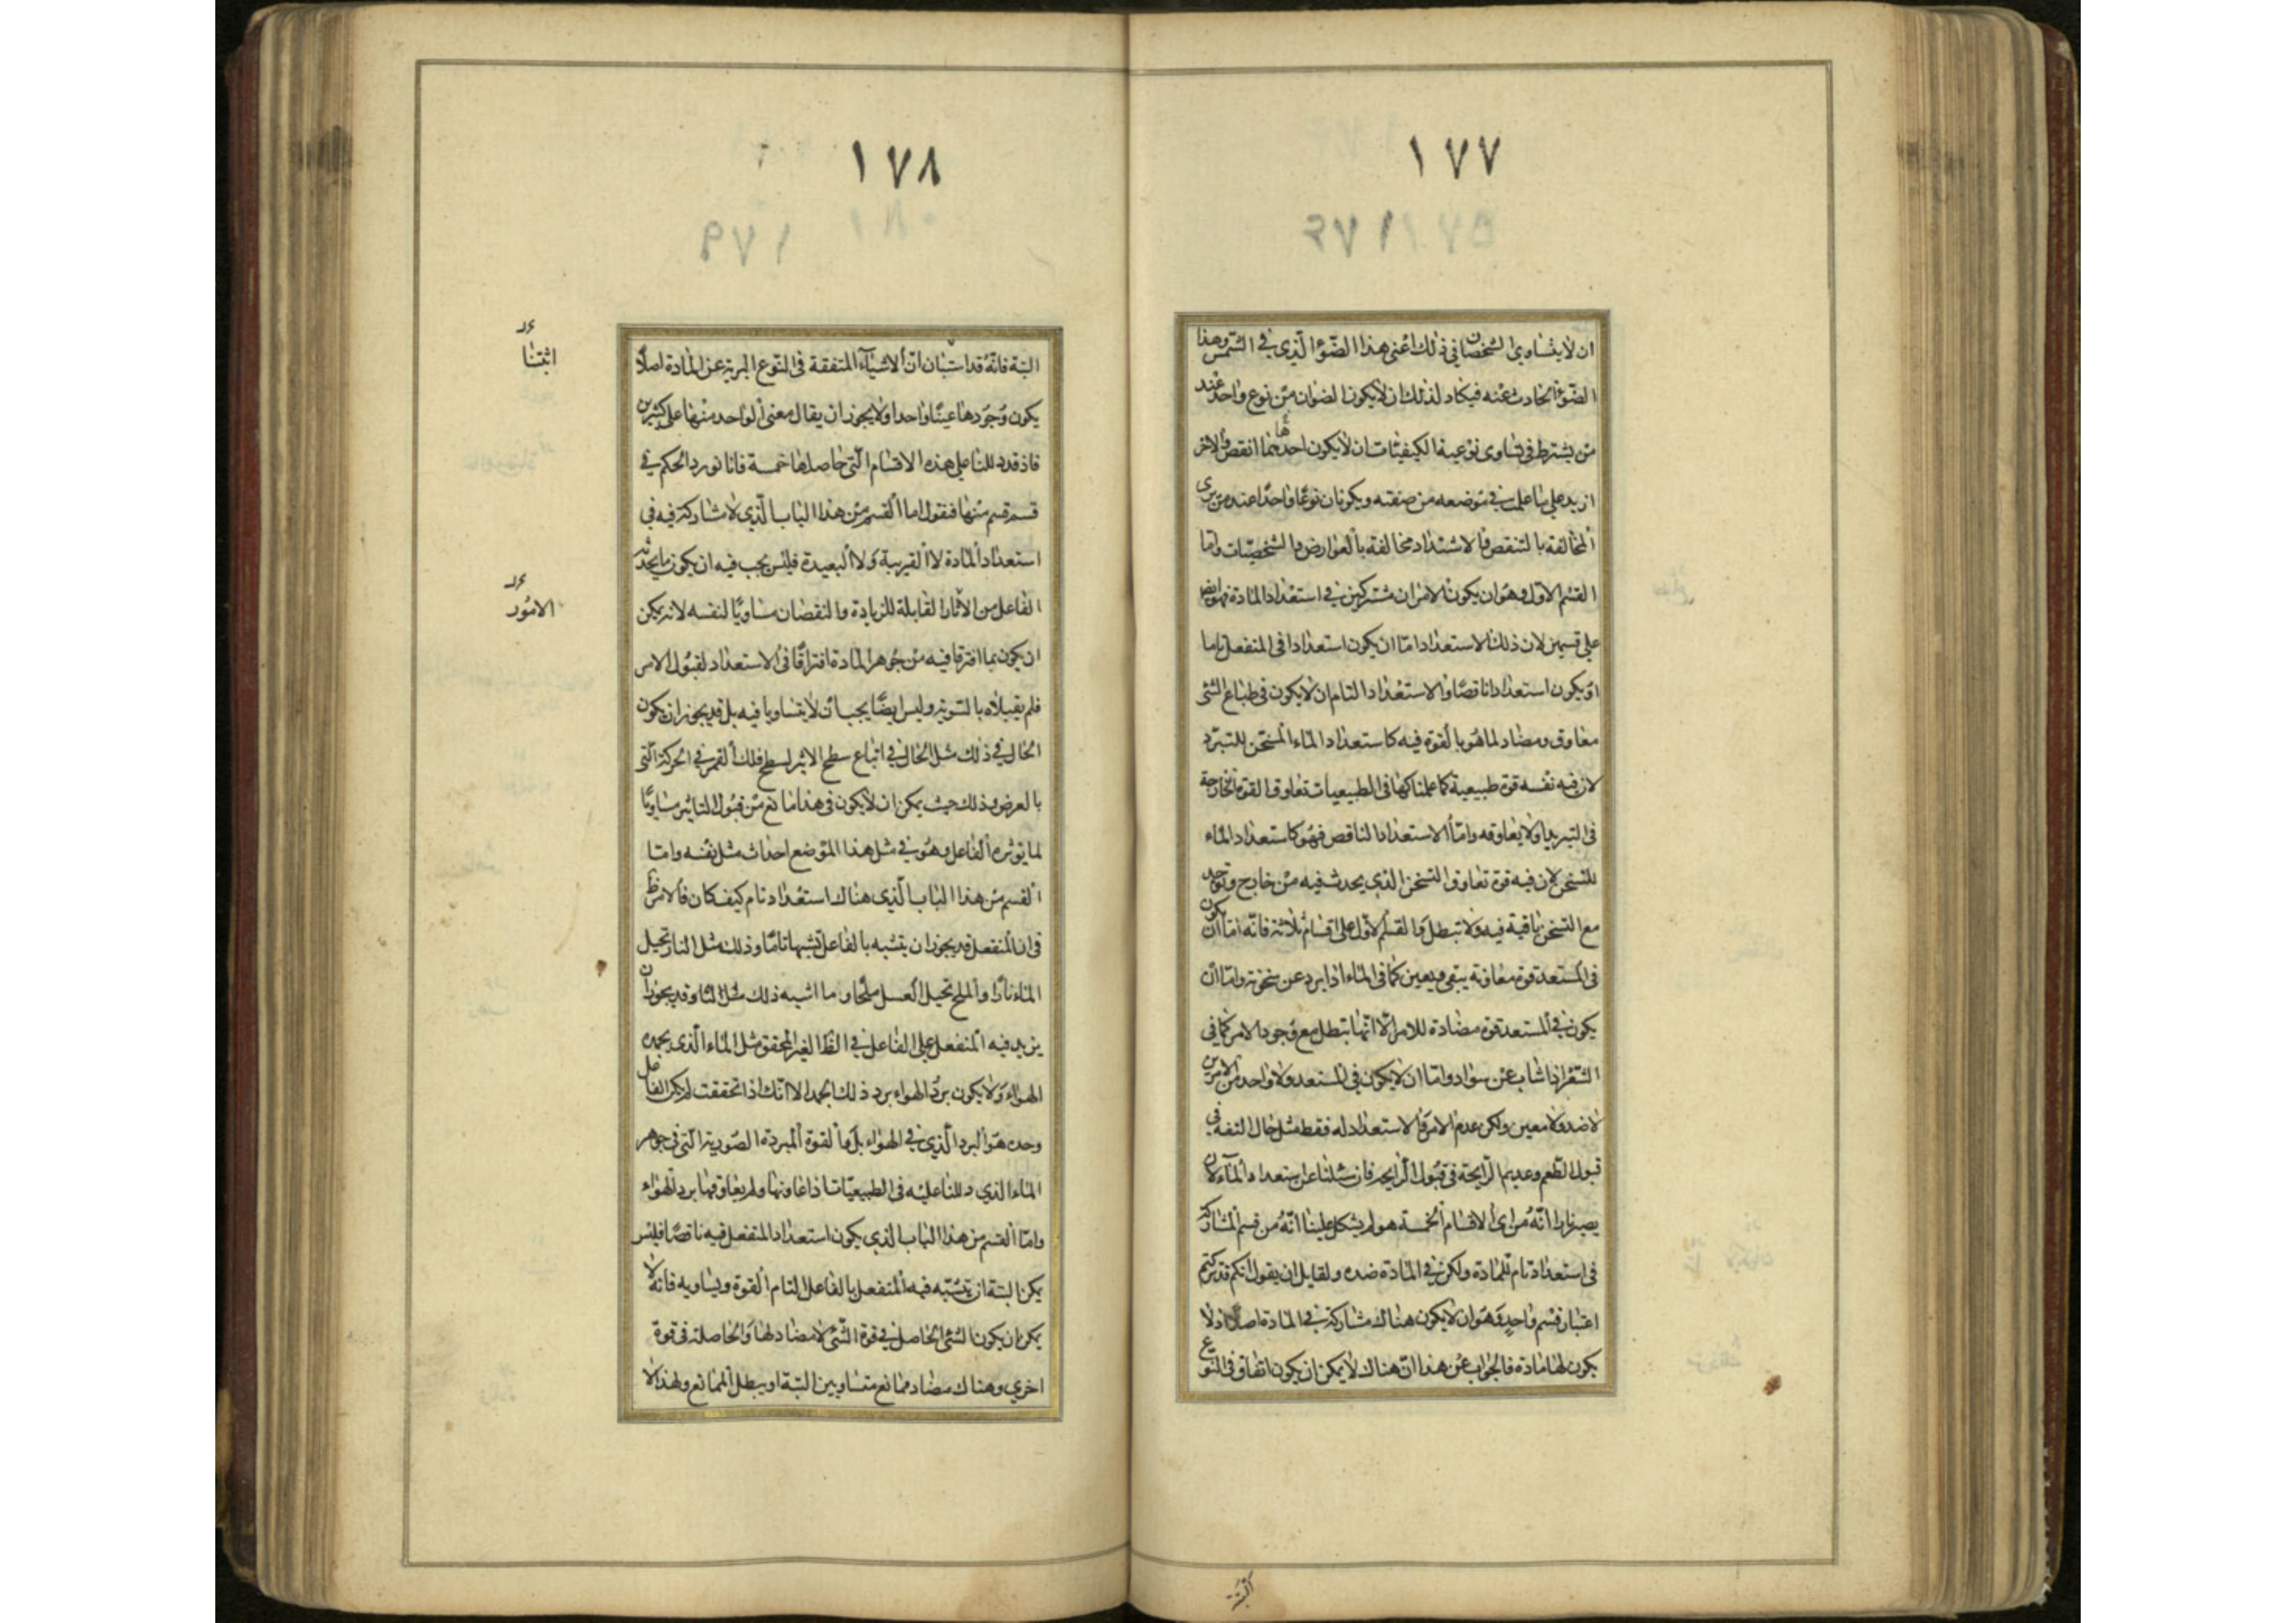 ١٧٧
ان لا يتساوى الشخصان في ذلك اعنى هذا الضوء الذي في الشمس وهذا
الضوء الحادث عنه فيكاد لذلك ان لا يكون الضوان من نوع واحد عند
من يشترط في تساوى نوعية الكيفيات ان لا يكون احدهما انقص والاخر
ازيد على ما علمت في موضعه من صفته ويكونان نوعا واحدا عند من يرى
المخالفة بالتنقص والاشتداد مخالفة بالعوارض والشخصيات واما
القسم الاول وهو ان يكون الامران مشتركين في استعداد المادة فهو ايضا
على قسمين لان ذلك الاستعداد اما ان يكون استعدادا في المنفعل تاما
او يكون استعدادا ناقصا والاستعداد التام ان لا يكون في طباع الشئ
معاوق ومضاد لما هو بالقوة فيه كاستعداد الماء المسخن للتبرد
لان فيه نفسه قوة طبيعية كما علمنا كها في الطبيعيات تعاوق القوة الخارجة
في التبريد اولا يعاوقه واما الاستعداد الناقص فهو كاستعداد الماء
للتسخن لان فيه قوة تعاوق التسخن الذي يحدث فيه من خارج وتوجد
مع التسخن باقية فيه ولا تبطل والقسم الاول على اقسام ثلاثة فانه اما ان يكون
في المستعد قوة معاونة يبقى ويعين كما في الماء اذا برد عن سخونة واما ان
يكون في المستعد قوة مضادة للامر الا انها تبطل مع وجود الامر كما في
الشعر اذا شاب عن سواد واما ان لا يكون في المستعد ولا واحد من الامرين
لا ضد ولا معين ولكن عدم الامر والاستعداد له فقط مثل حال التفه في
قبول الطعم وعديم الرايحة في قبول الرايحة فان سئلنا عن استعداد الماء لان
يصير نارا انه من اى الاقسام الخمسة هو لم يشكل علينا انه من قسم المشاركة
في استعداد تام للمادة ولكن في المادة ضده ولقايل ان يقول انكم قد تركتم
اعتبار قسم واحد وهو ان لا يكون هناك مشاركة في المادة اصلا اذ لا
يكون لها مادة فالجواب عن هذا ان هناك لا يمكن ان يكون اتفاق في النوع
البتة
١٧٨
البتة فانه قد استبان ان الاشياء المتفقة في النوع البرية عن المادة اصلا
يكون وجودها عينا واحدا ولا يجوز ان يقال معنى الواحد منها على كثيرين
فاذ قد دللنا على هذه الاقسام التي حاصلها خمسة فانا نورد الحكم في
قسم قسم منها فنقول اما القسم من هذا الباب الذي لا مشاركة فيه في
استعداد المادة لا القريبة ولا البعيدة فليس يجب فيه ان يكون ما يحدثه
الفاعل من الاثار القابلة للزيادة والنقصان مساويا لنفسه لانه يمكن
ان يكون بما افترقا فيه من جوهر المادة افترقا في الاستعداد لقبول الامر
فلم يقبلاه بالتسوية وليس ايضا يجب ان لا يتساويا فيه بل قد يجوز ان يكون
الحال في ذلك مثل الحال في اتباع سطح الاثير لسطح فلك القمر في الحركة التي
بالعرض وذلك حيث يمكن ان لا يكون في هذا مانع من قبول التاثير مساويا
لما يوثره الفاعل وهو في مثل هذا الموضع احداث مثل نفسه واما
القسم من هذا الباب الذي هناك استعداد تام كيف كان فالامر ظ
في ان المنفعل قد يجوز ان يتشبه بالفاعل تشبها تاما وذلك مثل النار تحيل
الماء نارا والملح تحيل العسل ملحا وما اشبه ذلك وقد يجوز ان
يزيد فيه المنفعل على الفاعل في الظ الغير المحقق مثل الماء الذي يجمده
الهواء ولا يكون برد الهواء برد ذلك الجمد الا انك اذا تحققت لم يكن الفاعل
وحده هو البرد الذي في الهواء بل والقوة المبردة الصورية التي في جوهر
الماء الذي دللنا عليه في الطبيعيات اذا عاونها ولم يعاوقها برد الهواء
واما القسم من هذا الباب الذي يكون استعداد المنفعل فيه ناقصا فليس
يمكن البتة ان يتشبه فيه المنفعل بالفاعل التام القوة ويساويه فانه لا
يمكن ان يكون الشئ الحاصل في قوة الشئ لا مضاد لها والحاصلة في قوة
اخرى وهناك مضاد ممانع متساويين البتة او يبطل الممانع ولهذا لا
اثبتنا
الامور